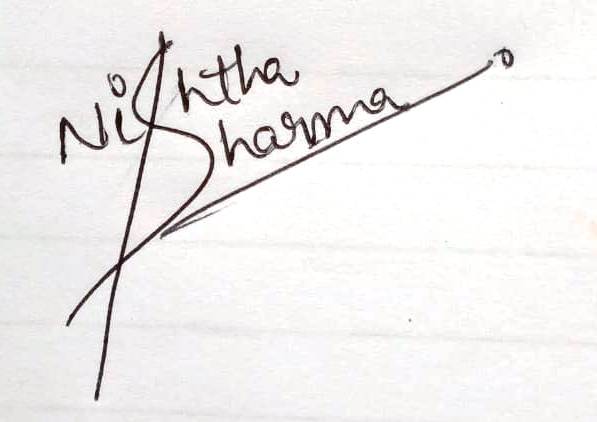 Nishtha
Sharma